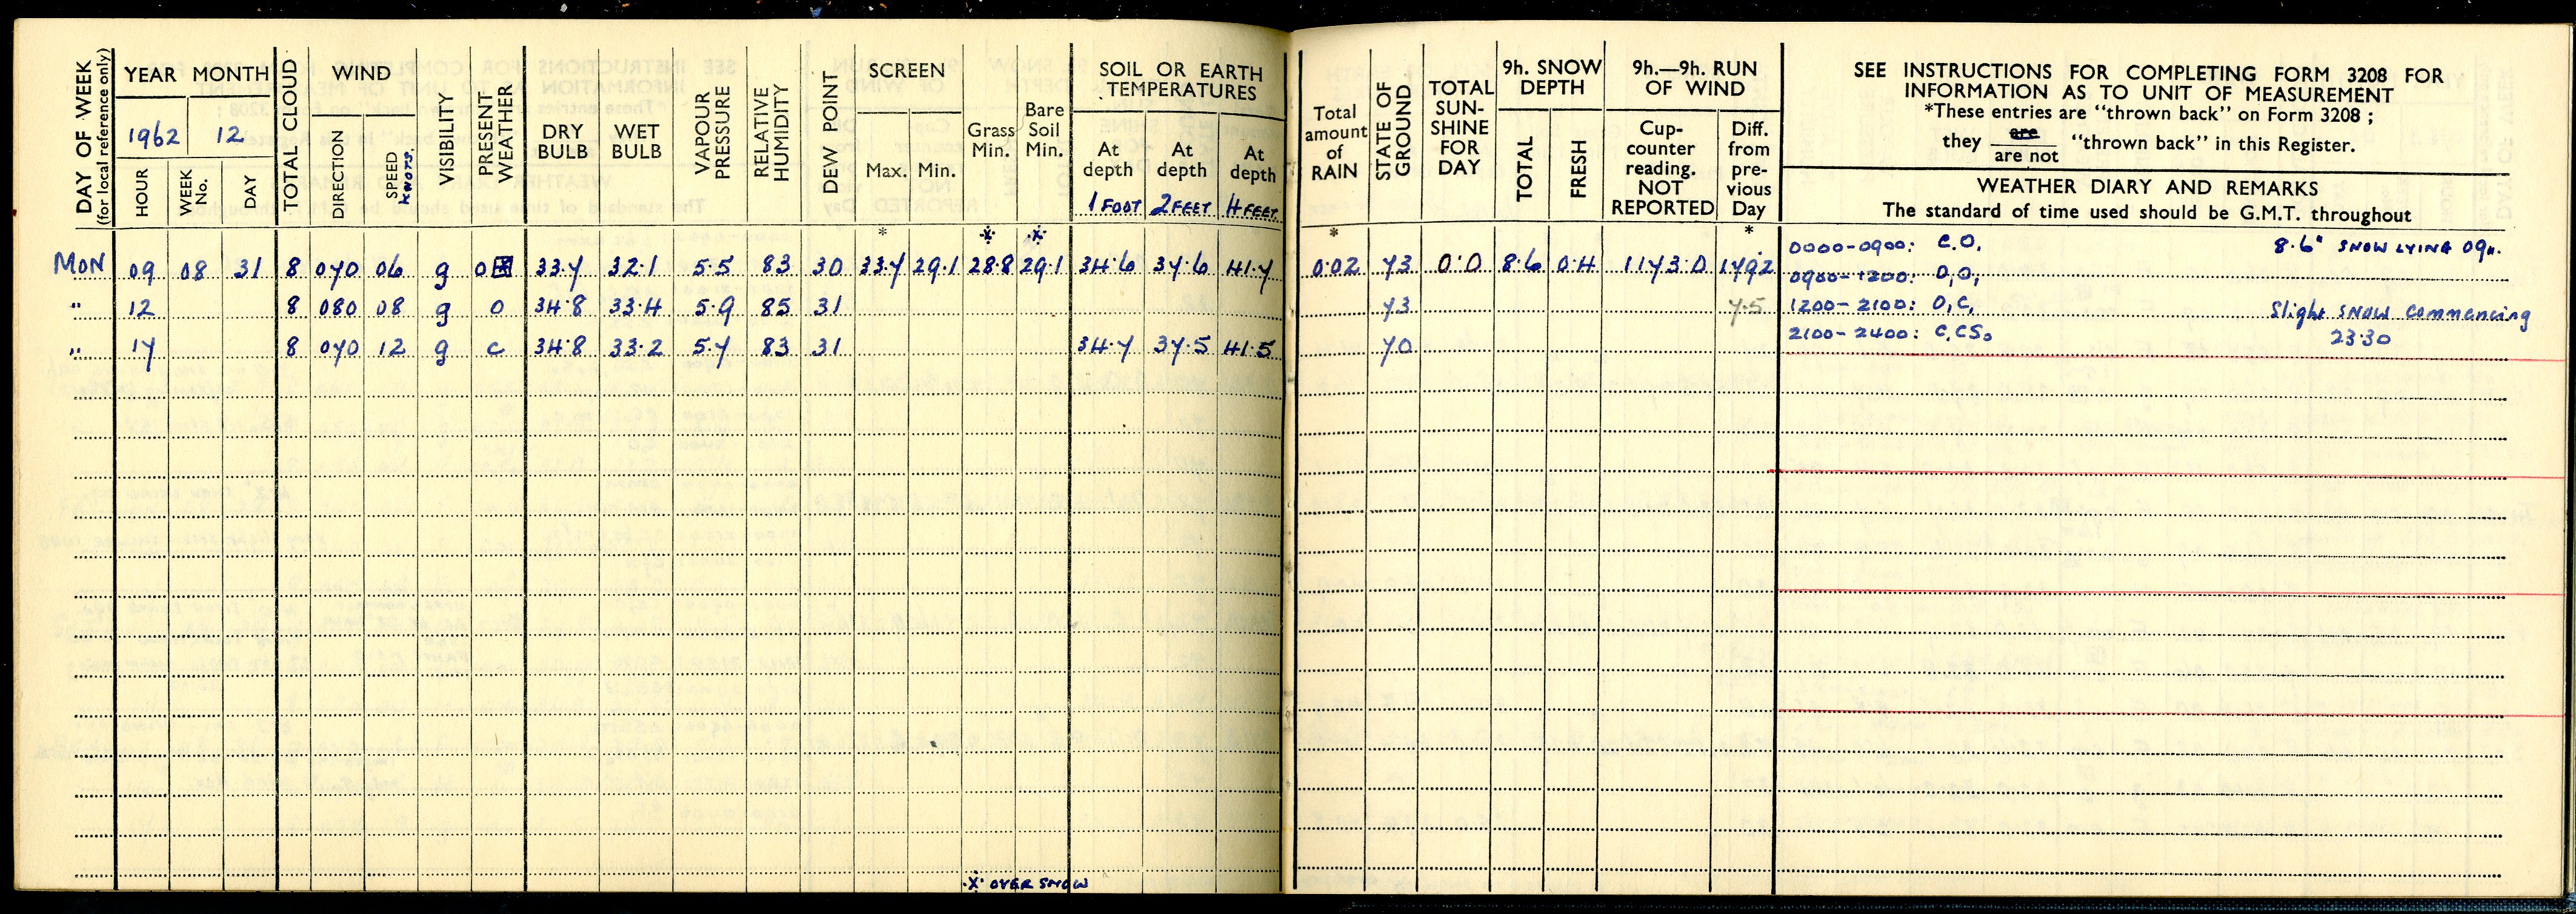 DAY OF WEEK
(for local reference only)
YEAR MONTH
1962 12
HOUR
WEEK No.
DAY
TOTAL CLOUD
WIND
DIRECTION
SPEED knots.
VISIBILITY
PRESENT WEATHER
DRY BULB
WET BULB
VAPOUR PRESSURE
RELATIVE HUMIDITY
DEW POINT
SCREEN
Max. Min.
Grass Min.
Bare Soil Min.
SOIL OR EARTH
TEMPERATURES
At depth 1 FOOT
At depth 2 FEET
At depth 4 FEET
Total amount of RAIN
STATE OF GROUND
TOTAL SUN-SHINE FOR DAY
9h. SNOW DEPTH
TOTAL
FRESH
9h.—9h. RUN OF WIND
Cup-counter reading. NOT REPORTED
Diff. from pre-vious Day
SEE INSTRUCTIONS FOR COMPLETING FORM 3208 FOR
INFORMATION AS TO UNIT OF MEASUREMENT
*These entries are "thrown back" on Form 3208 ;
they are / are not "thrown back" in this Register.
WEATHER DIARY AND REMARKS
The standard of time used should be G.M.T. throughout
* * * * *
MON 09 08 31 8 070 06 g o 33.7 32.1 5.5 83 30 33.7 29.1 28.8 29.1 34.6 37.6 41.7 0.02 73 0.0 8.6 0.4 1173.0 179.2
" 12 8 080 08 g o 34.8 33.4 5.9 85 31 73 7.5
" 17 8 070 12 g c 34.8 33.2 5.7 83 31 34.7 37.5 41.5 70
0000-0900: C.O. 8.6" SNOW LYING 09h.
0900-1200: O,O,
1200-2100: O,C, Slight SNOW commencing
2100-2400: C,CSo 23.30
X OVER SNOW